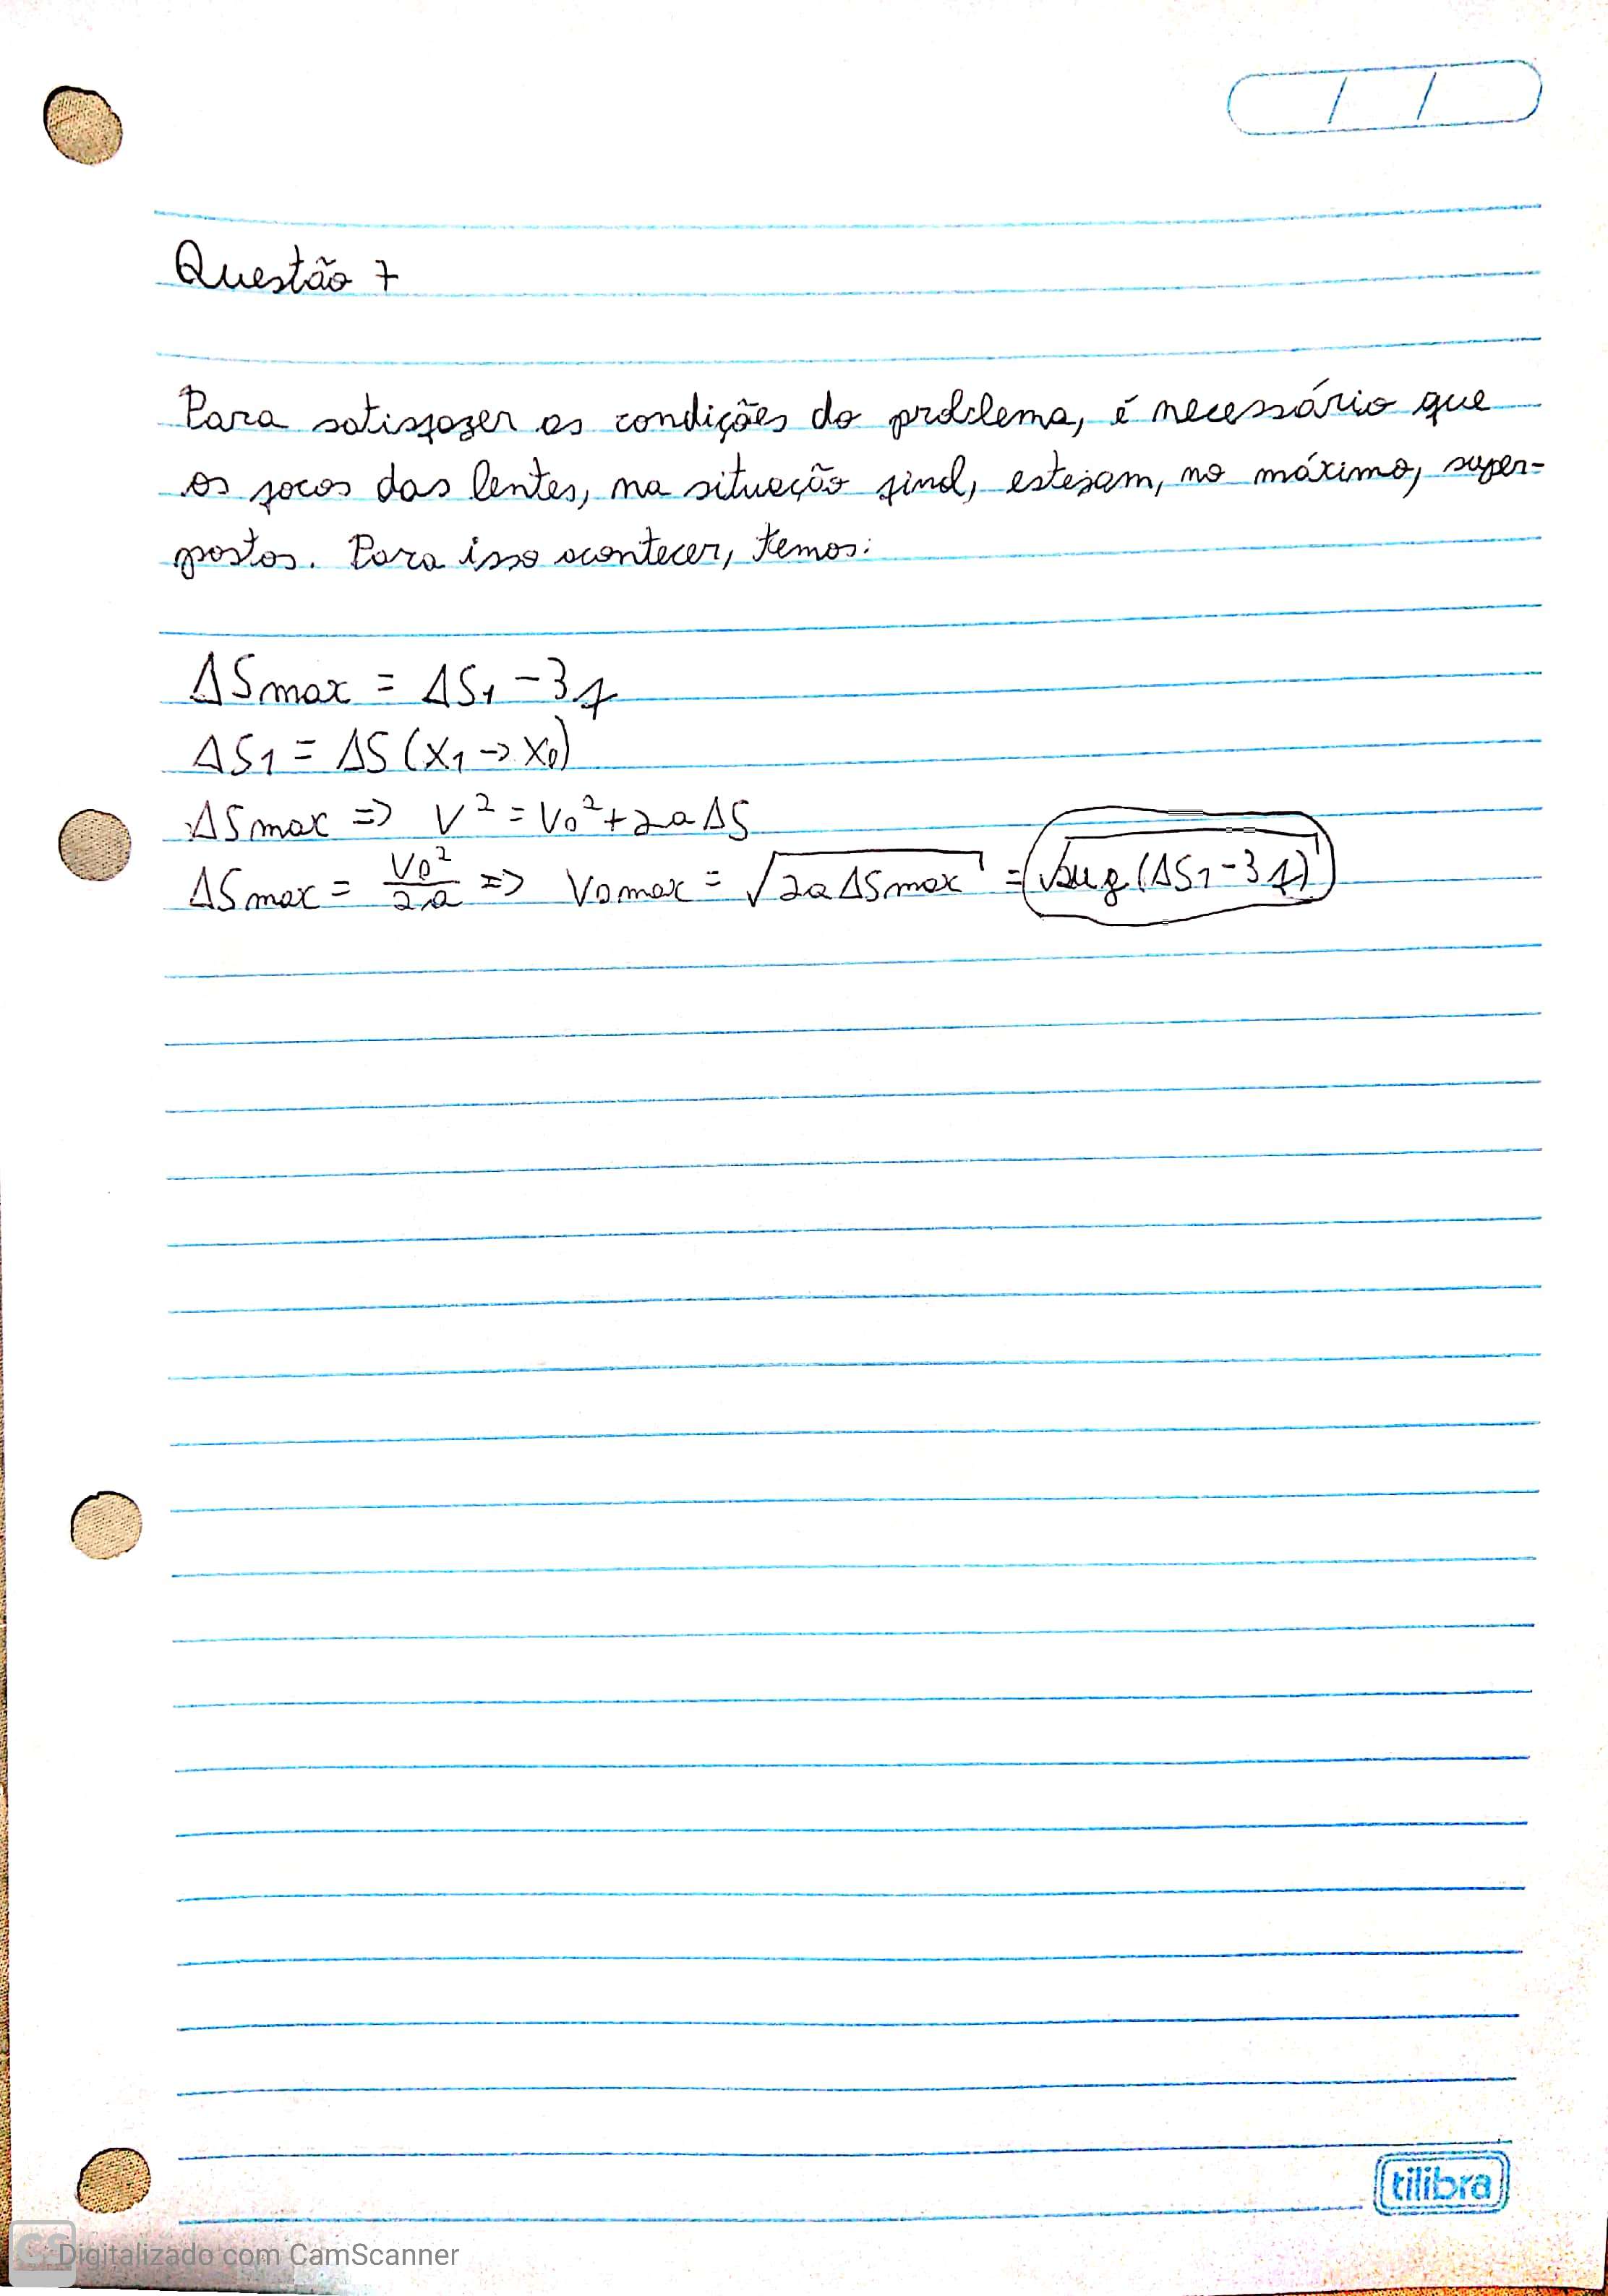 Questão 7
Para satisfazer as condições do problema, é necessário que
os focos das lentes, na situação final, estejam, no máximo, super-
postos. Para isso acontecer, temos:
ΔSmax = ΔS1 - 3f
ΔS1 = ΔS (X1 -> X0)
ΔSmax => V² = V0² + 2aΔS
ΔSmax = V0²/2a => V0max = √2aΔSmax = √2μg(ΔS1 - 3f)
tilibra
CS Digitalizado com CamScanner